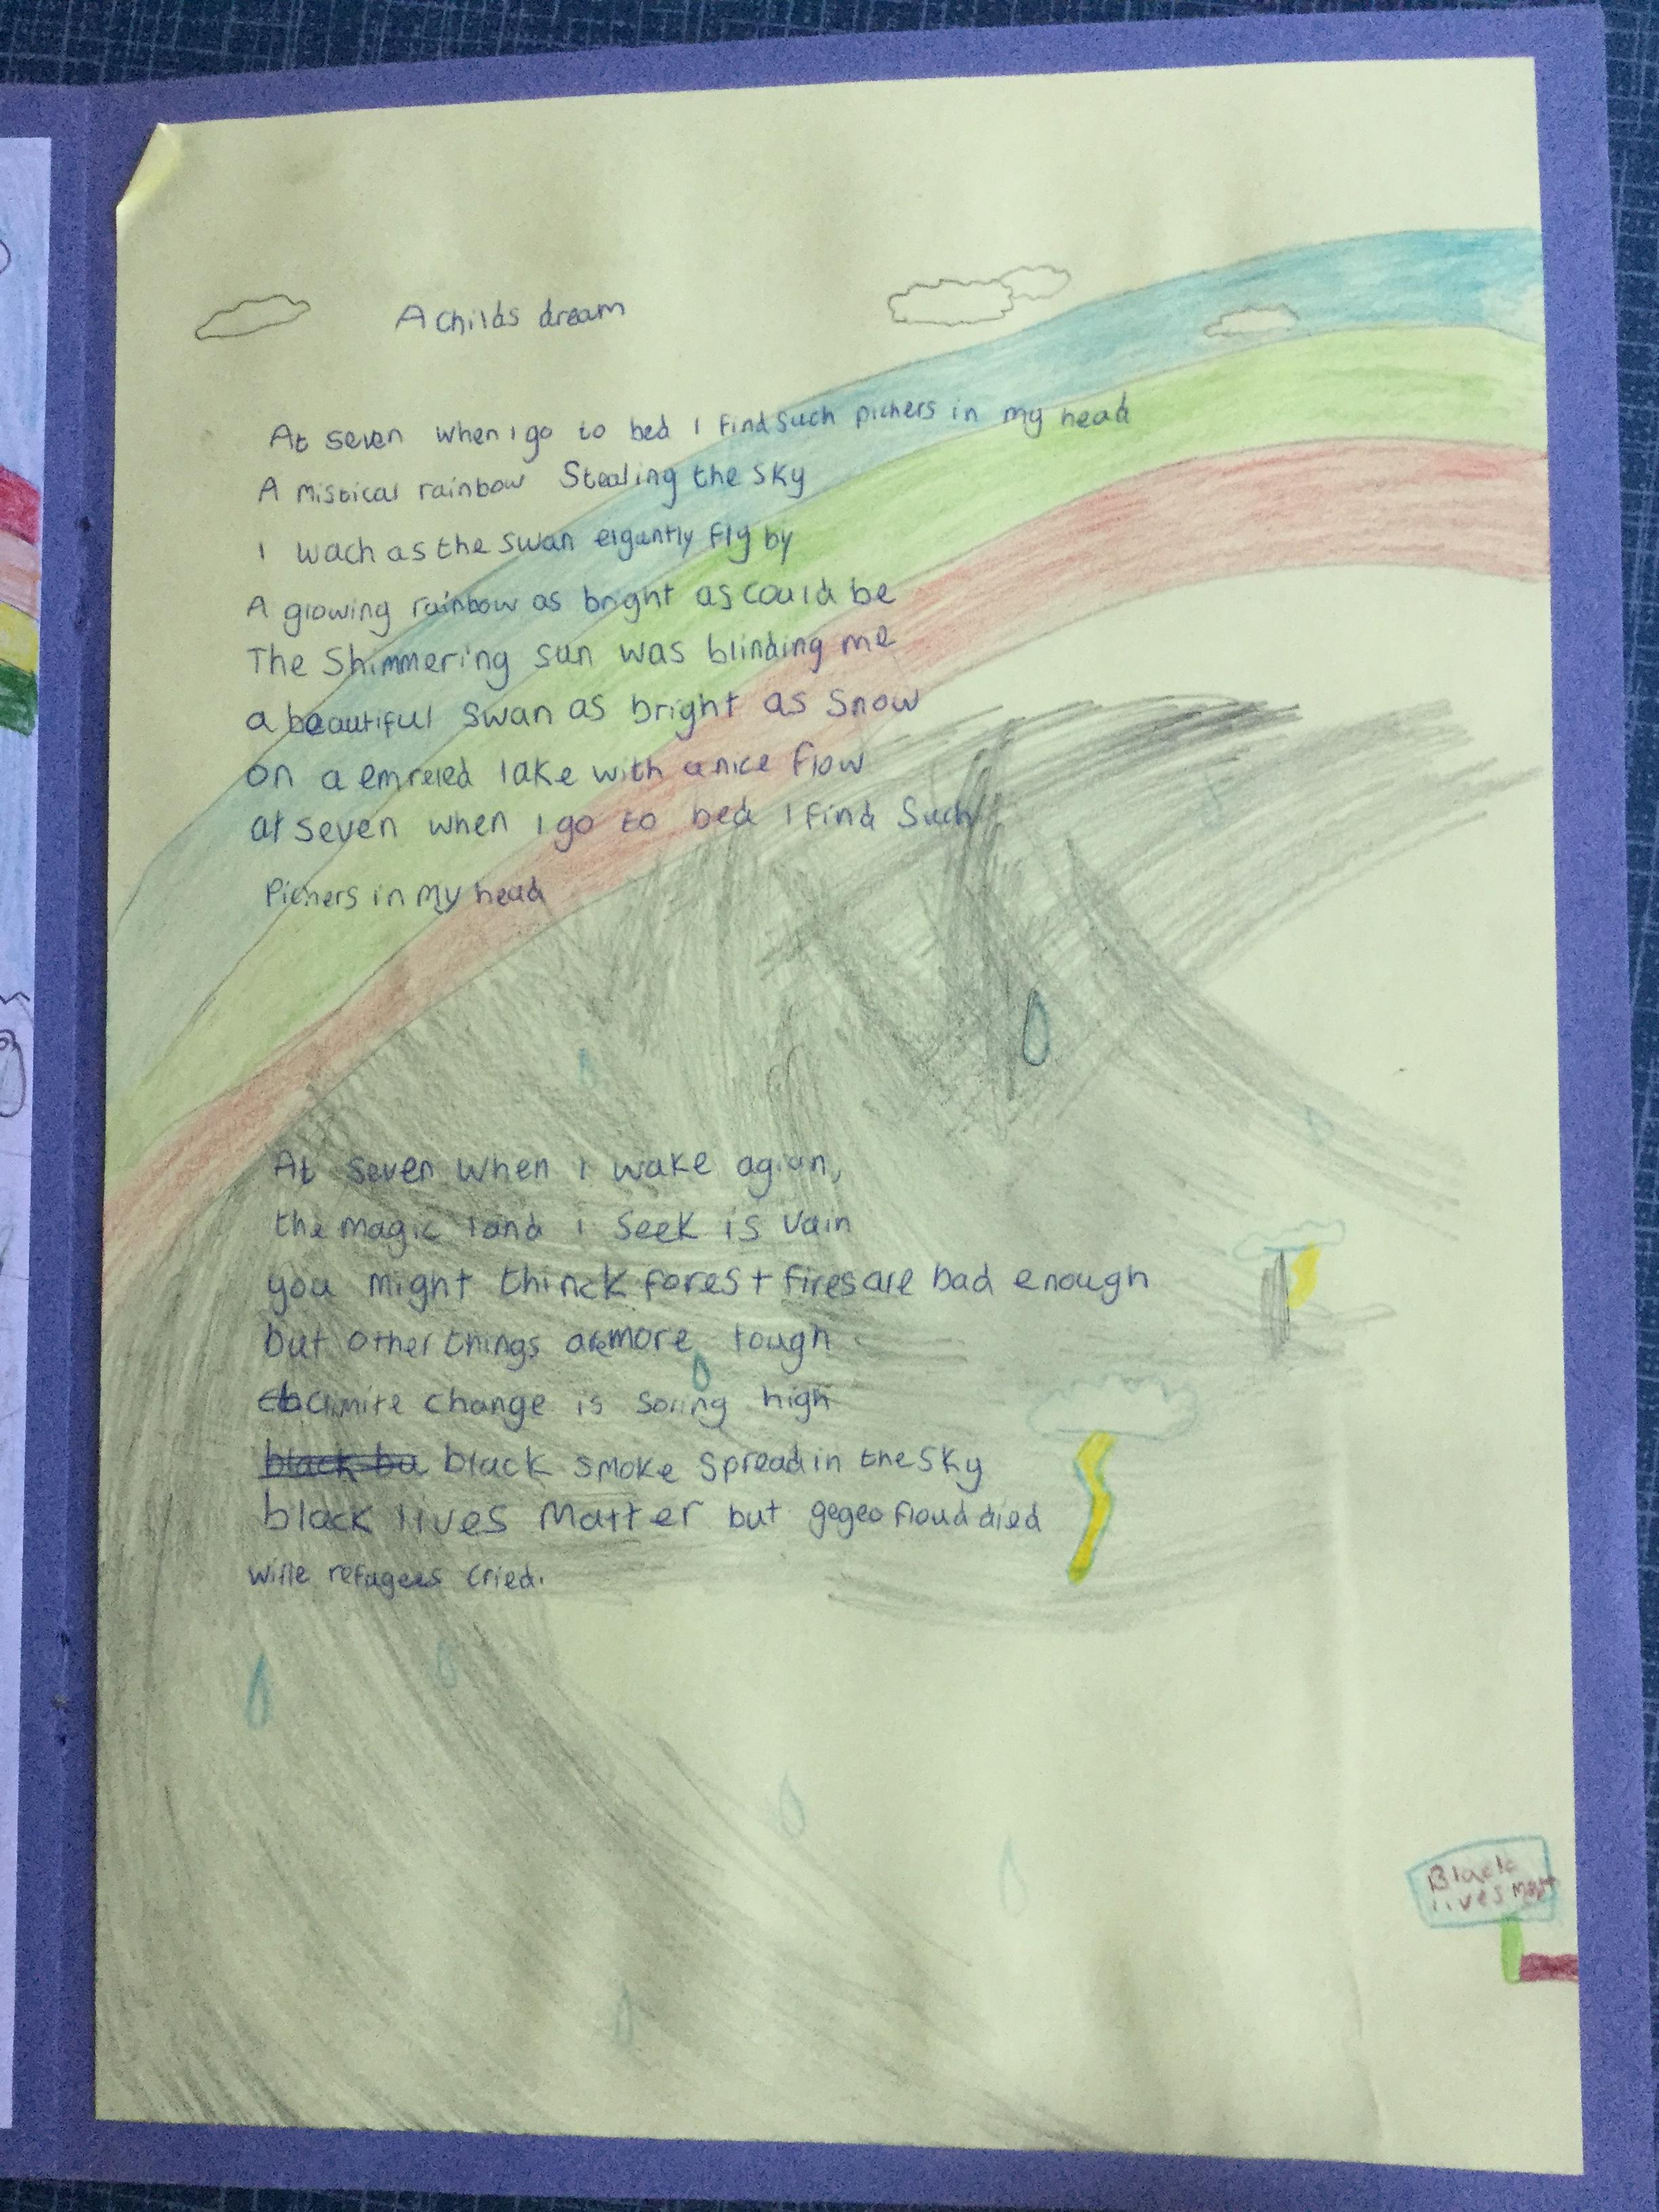 A childs dream
At seven when i go to bed I find such pichers in my head
A mistical rainbow Stealing the sky
I wach as the swan elgantly fly by
A glowing rainbow as bright as could be
The Shimmering sun was blinding me
a beautiful swan as bright as snow
on a emreled lake with a nice flow
at seven when i go to bed I find Such
Pichers in my head
At seven when i wake agian,
the magic land i seek is vain
you might thinck forest fires are bad enough
but other things are more tough
climite change is soring high
black bu black smoke spread in the sky
black lives Matter but gegeo floud died
wille refugees cried.
Black
lives matt